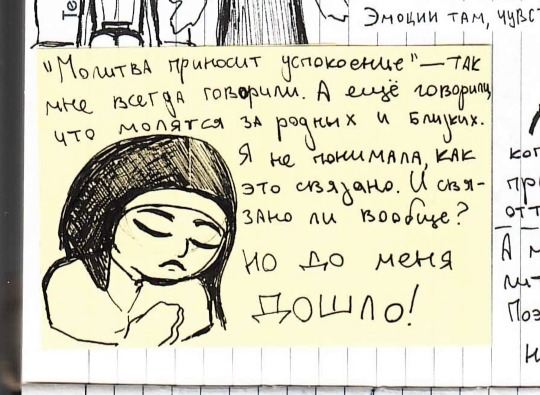 Те
Эмоции там, чувст
"Молитва приносит успокоение" — так
мне всегда говорили. А ещё говорили,
что молятся за родных и близких.
Я не понимала, как
это связано. И свя-
зано ли вообще?
Но до меня
дошло!
ког
при
отт
А м
лит
Поэ
Н